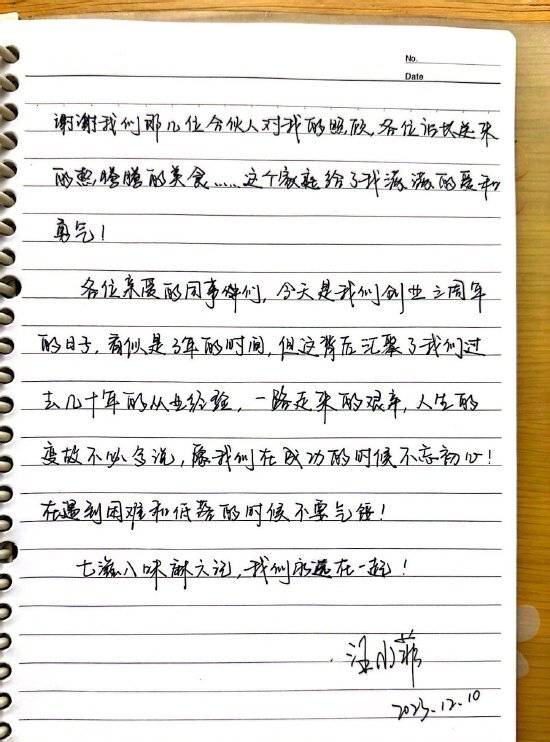 No.
Date
谢谢我们那几位合伙人对我的照顾,各位姑姑送来
的热腾腾的美食......这个家庭给了我满满的爱和
勇气!
各位亲爱的同事伴们,今天是我们创业三周年
的日子,看似是3年的时间,但这背后汇聚了我们过
去几十年的从业经验,一路走来的艰辛,人生的
变故不必多说,愿我们在成功的时候不忘初心!
在遇到困难和低落的时候不要气馁!
七滋八味麻六记,我们永远在一起!
汪小菲
2023.12.10